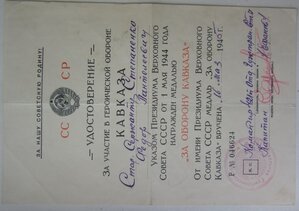 ЗА НАШУ СОВЕТСКУЮ РОДИНУ!
СС СР
УДОСТОВЕРЕНИЕ
ЗА УЧАСТИЕ В ГЕРОИЧЕСКОЙ ОБОРОНЕ
КАВКАЗА
Стар. Сержант Степаненко
Федор
Указом Президиума Верховного
Совета СССР от 1 мая 1944 года
НАГРАЖДЕН МЕДАЛЬЮ
„ЗА ОБОРОНУ КАВКАЗА“
От имени Президиума Верховного
Совета СССР медаль „За оборону
Кавказа“ вручена 16 мая 1945 г.
Р № 046624
М.П.
Капитан